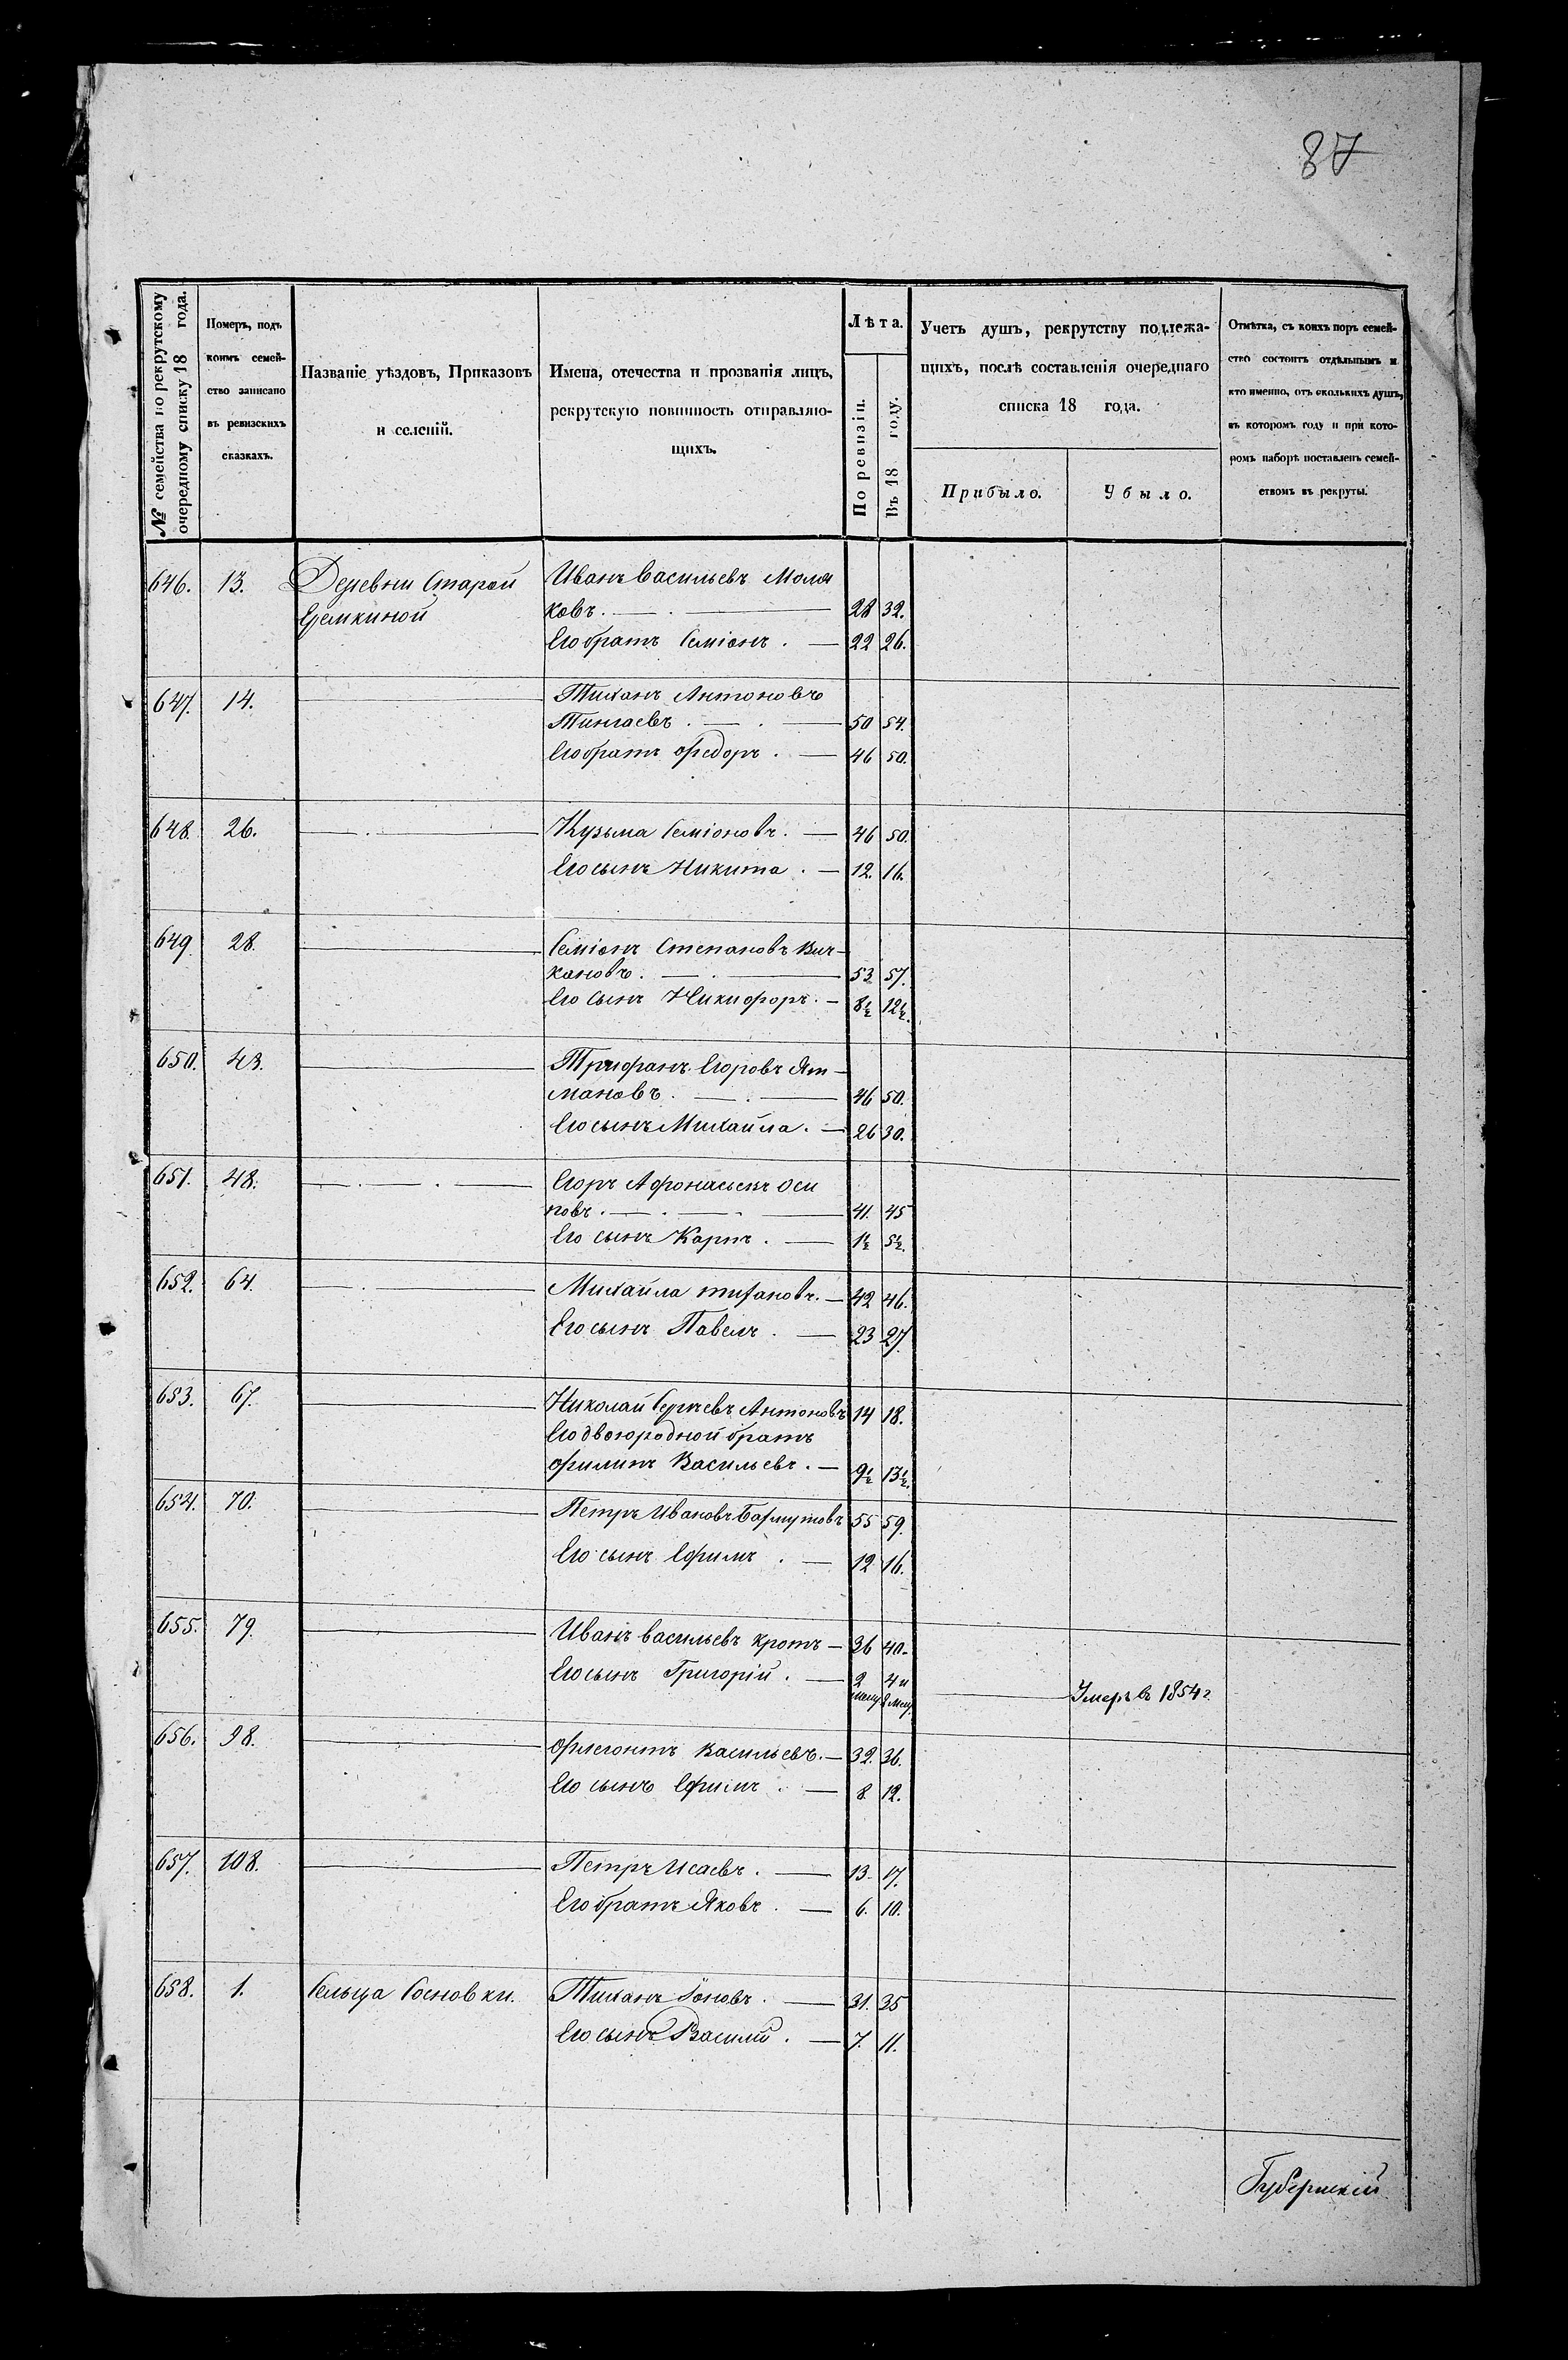 87
№ семейства по рекрутскому очередному списку 18 года.
Номеръ, подъ коимъ семейство записано въ ревизскихъ сказкахъ.
Названіе уѣздовъ, Приказовъ и селеній.
Имена, отечества и прозванія лицъ, рекрутскую повинность отправляющихъ.
Лѣта.
По ревизіи.
Въ 18 году.
Учетъ душъ, рекрутству подлежащихъ, послѣ составленія очереднаго списка 18 года.
Прибыло.
Убыло.
Отмѣтка, съ коихъ поръ семейство состоитъ отдѣльнымъ и кто именно, отъ сколькихъ душъ, въ которомъ году и при которомъ наборѣ поставленъ семействомъ въ рекруты.
646. 13. Деревни Старой Иванъ Васильевъ Моля
Еремкиной ковъ. — 28 32.
Его братъ Семіонъ. — 22 26.
647. 14. — Тиханъ Антоновъ
Тингаевъ. — 50 54.
Его братъ Федоръ. — 46 50.
648. 26. — Кузьма Семіоновъ. — 46 50.
Его сынъ Никита. — 12. 16.
649. 28. — Семіонъ Степановъ Вич-
кановъ. — 53 57.
Его Сынъ Никифоръ. — 8½ 12½.
650. 43. — Трифанъ Егоровъ Ят-
мановъ. — 46 50.
Его сынъ Михайла. — 26 30.
651. 48. — Егоръ Афонасьевъ Оси
повъ. — 41. 45
Его сынъ Карпъ. — 1½ 5½.
652. 64. — Михайла тихановъ. — 42 46.
Его сынъ Павелъ. — 23 27.
653. 67. — Николай Сергѣевъ Антоновъ 14 18.
Его двоюродной братъ
Филипъ Васильевъ. — 9½ 13½.
654. 70. — Петръ Ивановъ 55 59.
Его сынъ Ефимъ. — 12 16.
655. 79. — Иванъ Васильевъ Кротъ — 36 40.
Его сынъ Григорій. — 2 4 и
— Умеръ въ 1854 г
656. 98. — Флегонтъ Васильевъ. — 32. 36.
Его сынъ Ефимъ. — 8. 12.
657. 108. — Петръ Исаевъ. — 13. 17.
Его братъ Яковъ. — 6. 10.
658. 1. Сельца Сосновки. Тиханъ Іоновъ. — 31. 35
Его сынъ Василій. — 7. 11.
Губернскій